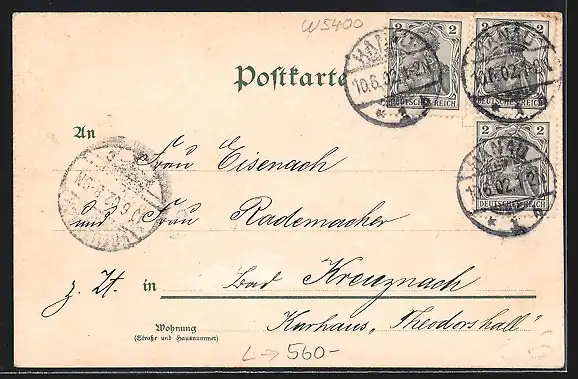 W5400
2 2
DEUTSCHES REICH DEUTSCHES REICH
HANAU
10.6.02.1-2N.
* 1
HANAU
10.6.02.1-2N.
* 1
Postkarte
An
2 2
DEUTSCHES REICH
HANAU
* 1
Frau Eisenach
und Frau Rademacher
z. Zt. in Bad Kreuznach
Wohnung
(Straße und Hausnummer)
Kurhaus „Theodorshall"
L→560-